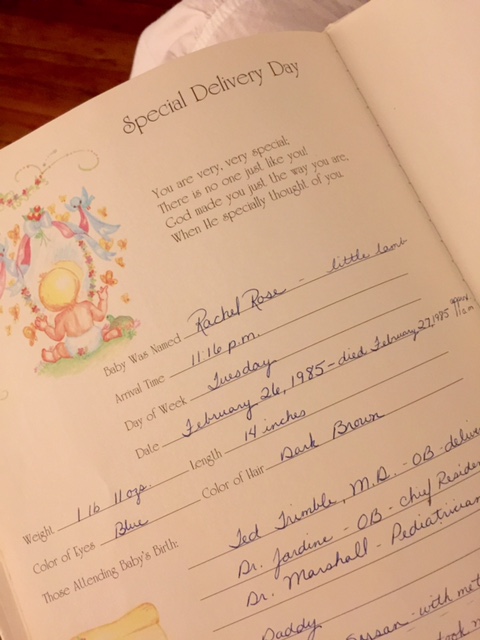 Special Delivery Day
You are very, very special;
There is no one just like you!
God made you just the way you are,
When He specially thought of you.
Baby Was Named Rachel Rose - little lamb
Arrival Time 11:16 p.m.
Day of Week Tuesday
Date February 26, 1985 - died February 27, 1985
Weight 1 lb 11 ozs. Length 14 inches
Color of Eyes Blue Color of Hair Dark Brown
Those Attending Baby's Birth:
Ted Trimble, M.D. - OB - deliver
Dr. Jardine - OB - Chief Residen
Dr. Marshall - Pediatrician
Daddy
- with
took